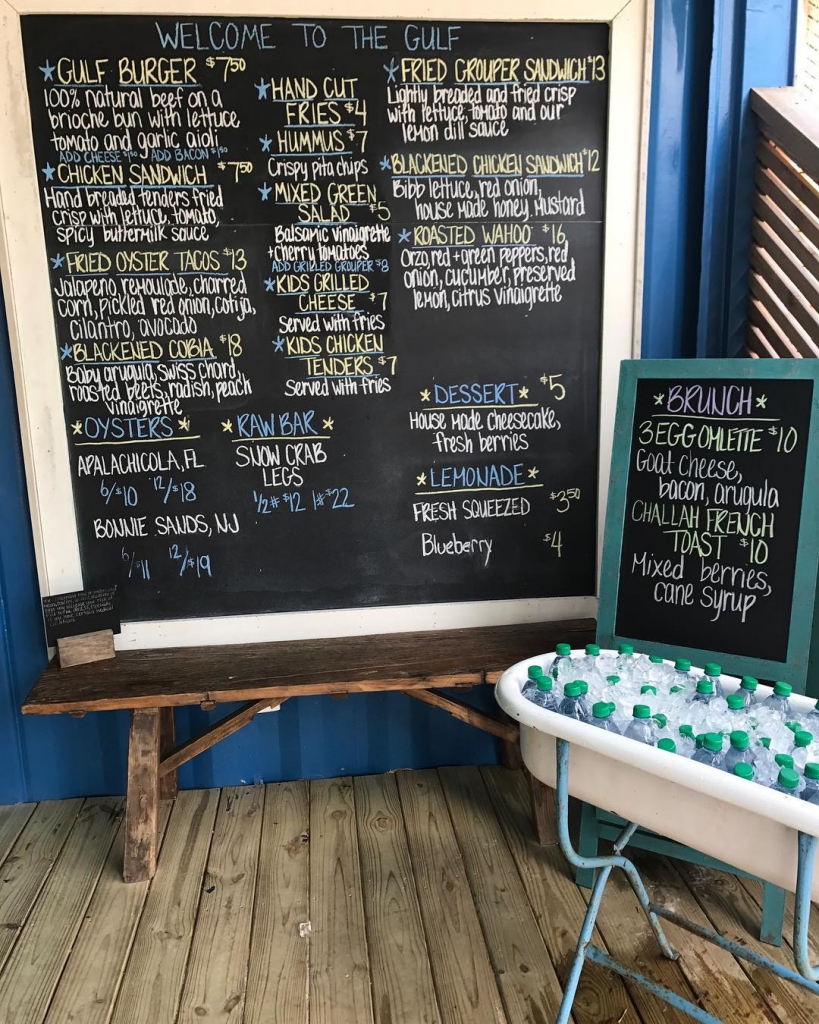 WELCOME TO THE GULF
*GULF BURGER $7.50
100% natural beef on a
brioche bun with lettuce
tomato and garlic aioli
ADD CHEESE $1.50 ADD BACON $1.50
*CHICKEN SANDWICH $7.50
Hand breaded tenders fried
crisp with lettuce, tomato,
spicy buttermilk sauce
*FRIED OYSTER TACOS $13
Jalapeño remoulade, charred
corn, pickled red onion, cotija,
cilantro, avocado
*BLACKENED COBIA $18
Baby arugula, swiss chard,
roasted beets, radish, peach
vinaigrette
*OYSTERS*
APALACHICOLA, FL
6/$10 12/$18
BONNIE SANDS, NJ
6/$11 12/$19
*HAND CUT
FRIES $4
*HUMMUS $7
Crispy pita chips
*MIXED GREEN
SALAD $5
Balsamic vinaigrette
+ cherry tomatoes
ADD GRILLED GROUPER $8
*KIDS GRILLED
CHEESE $7
Served with fries
*KIDS CHICKEN
TENDERS $7
Served with fries
*RAW BAR*
SNOW CRAB
LEGS
1/2# $12 1# $22
*FRIED GROUPER SANDWICH $13
Lightly breaded and fried crisp
with lettuce, tomato and our
lemon dill sauce
*BLACKENED CHICKEN SANDWICH $12
Bibb lettuce, red onion,
house made honey mustard
*ROASTED WAHOO $16
Orzo, red + green peppers, red
onion, cucumber, preserved
lemon, citrus vinaigrette
*DESSERT* $5
House made cheesecake,
fresh berries
*LEMONADE*
FRESH SQUEEZED $3.50
Blueberry $4
*BRUNCH*
3 EGG OMLETTE $10
Goat cheese,
bacon, arugula
CHALLAH FRENCH
TOAST $10
Mixed berries,
cane syrup